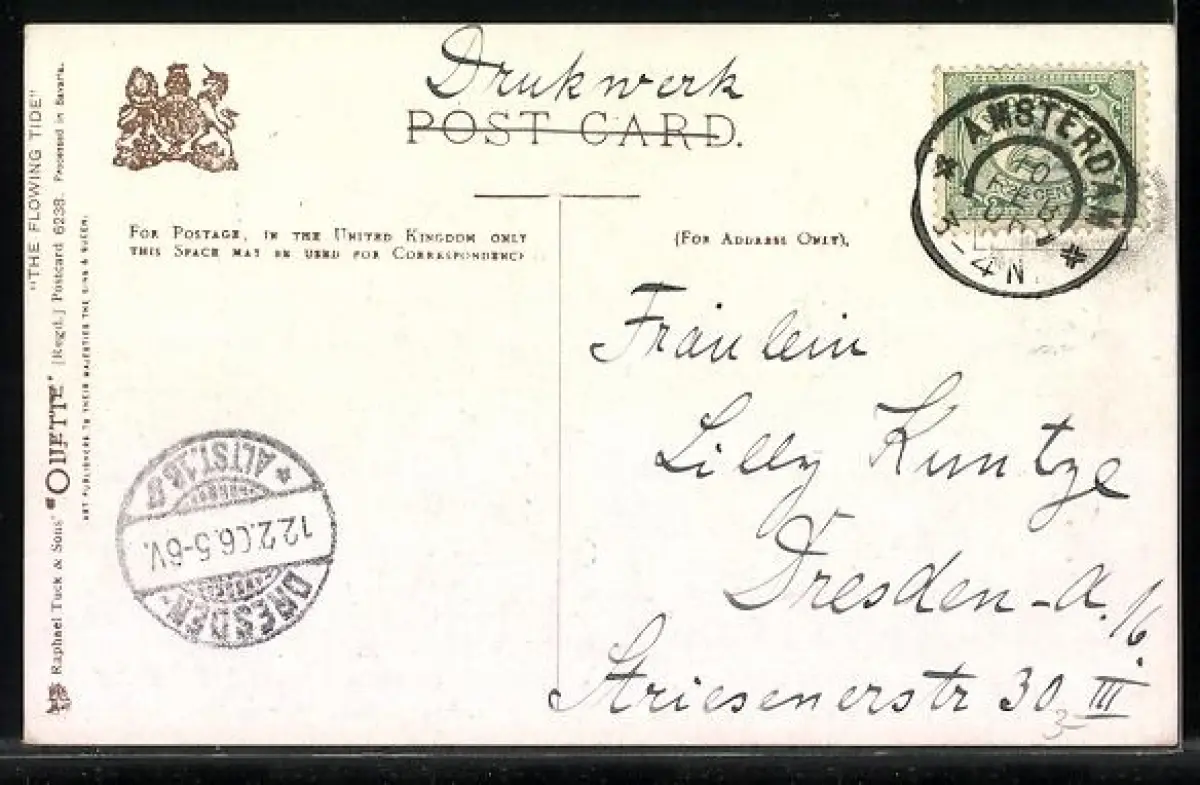 Drukwerk
POST CARD.
FOR POSTAGE, IN THE UNITED KINGDOM ONLY
THIS SPACE MAY BE USED FOR CORRESPONDENCE
(FOR ADDRESS ONLY).
AMSTERDAM
10
FEB
06
3-4 N
CENT
Fräulein
Lilly Kuntze
Dresden-A.
/6.
Striesenerstr 30 III
3-
DRESDEN-
12.2.06.5-6V.
* ALTST.16
"THE FLOWING TIDE"
Raphael Tuck & Sons' "OILETTE" [Regd.] Postcard 6238. Processed in Bavaria.
ART PUBLISHERS TO THEIR MAJESTIES THE KING & QUEEN.